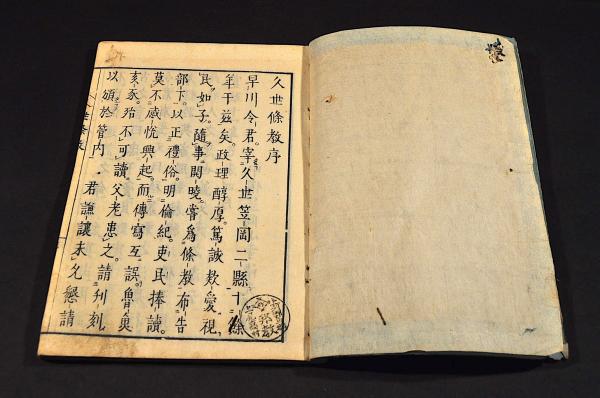 久世條教序
早川令君。宰久世笠岡二縣。十餘
年于茲矣。政理醇厚。篤誠愛視
民如子。隨事開曉。嘗爲條教。布告
部下。以正禮俗。明倫紀。吏民捧讀。
莫不感悅興起。而傳寫互誤。魯魚
亥豕。殆不可讀。父老患之。請刊刻
以頒於管內。君謙讓未允。懇請